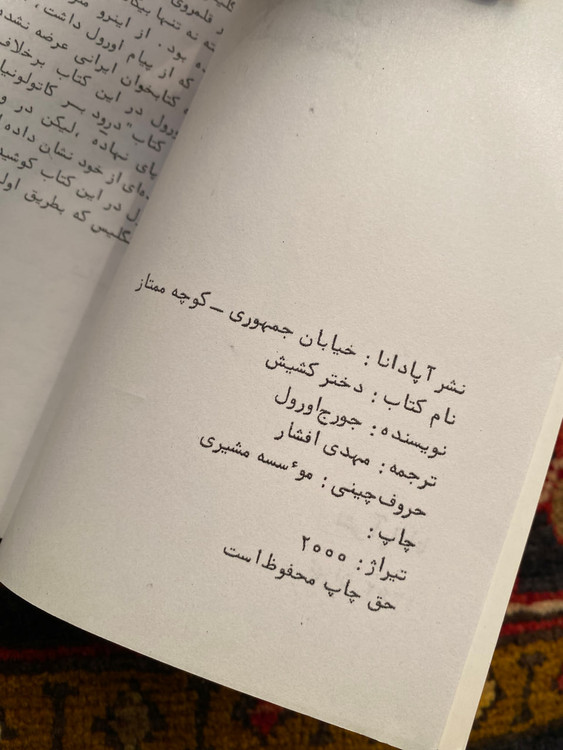 نشر آپادانا : خیابان جمهوری – کوچه ممتاز
نام کتاب : دختر کشیش
نویسنده : جورج‌اورول
ترجمه : مهدی افشار
حروف‌چینی : موءسسه مشیری
چاپ :
تیراژ : ۲۰۰۰
حق چاپ محفوظ‌است
قلمروی
نه تنها بیگا
ه بود . از اینرو
که از پیام اورول داشت ،
کتابخوان ایرانی عرضه نشده
ورول در این کتاب برخلاف
کتاب " درود بر کاتولونیا
پای نهاده ، لیکن در و
ه‌ای از خود نشان داده
ل در این کتاب کوشید
گلیس که بطریق اول